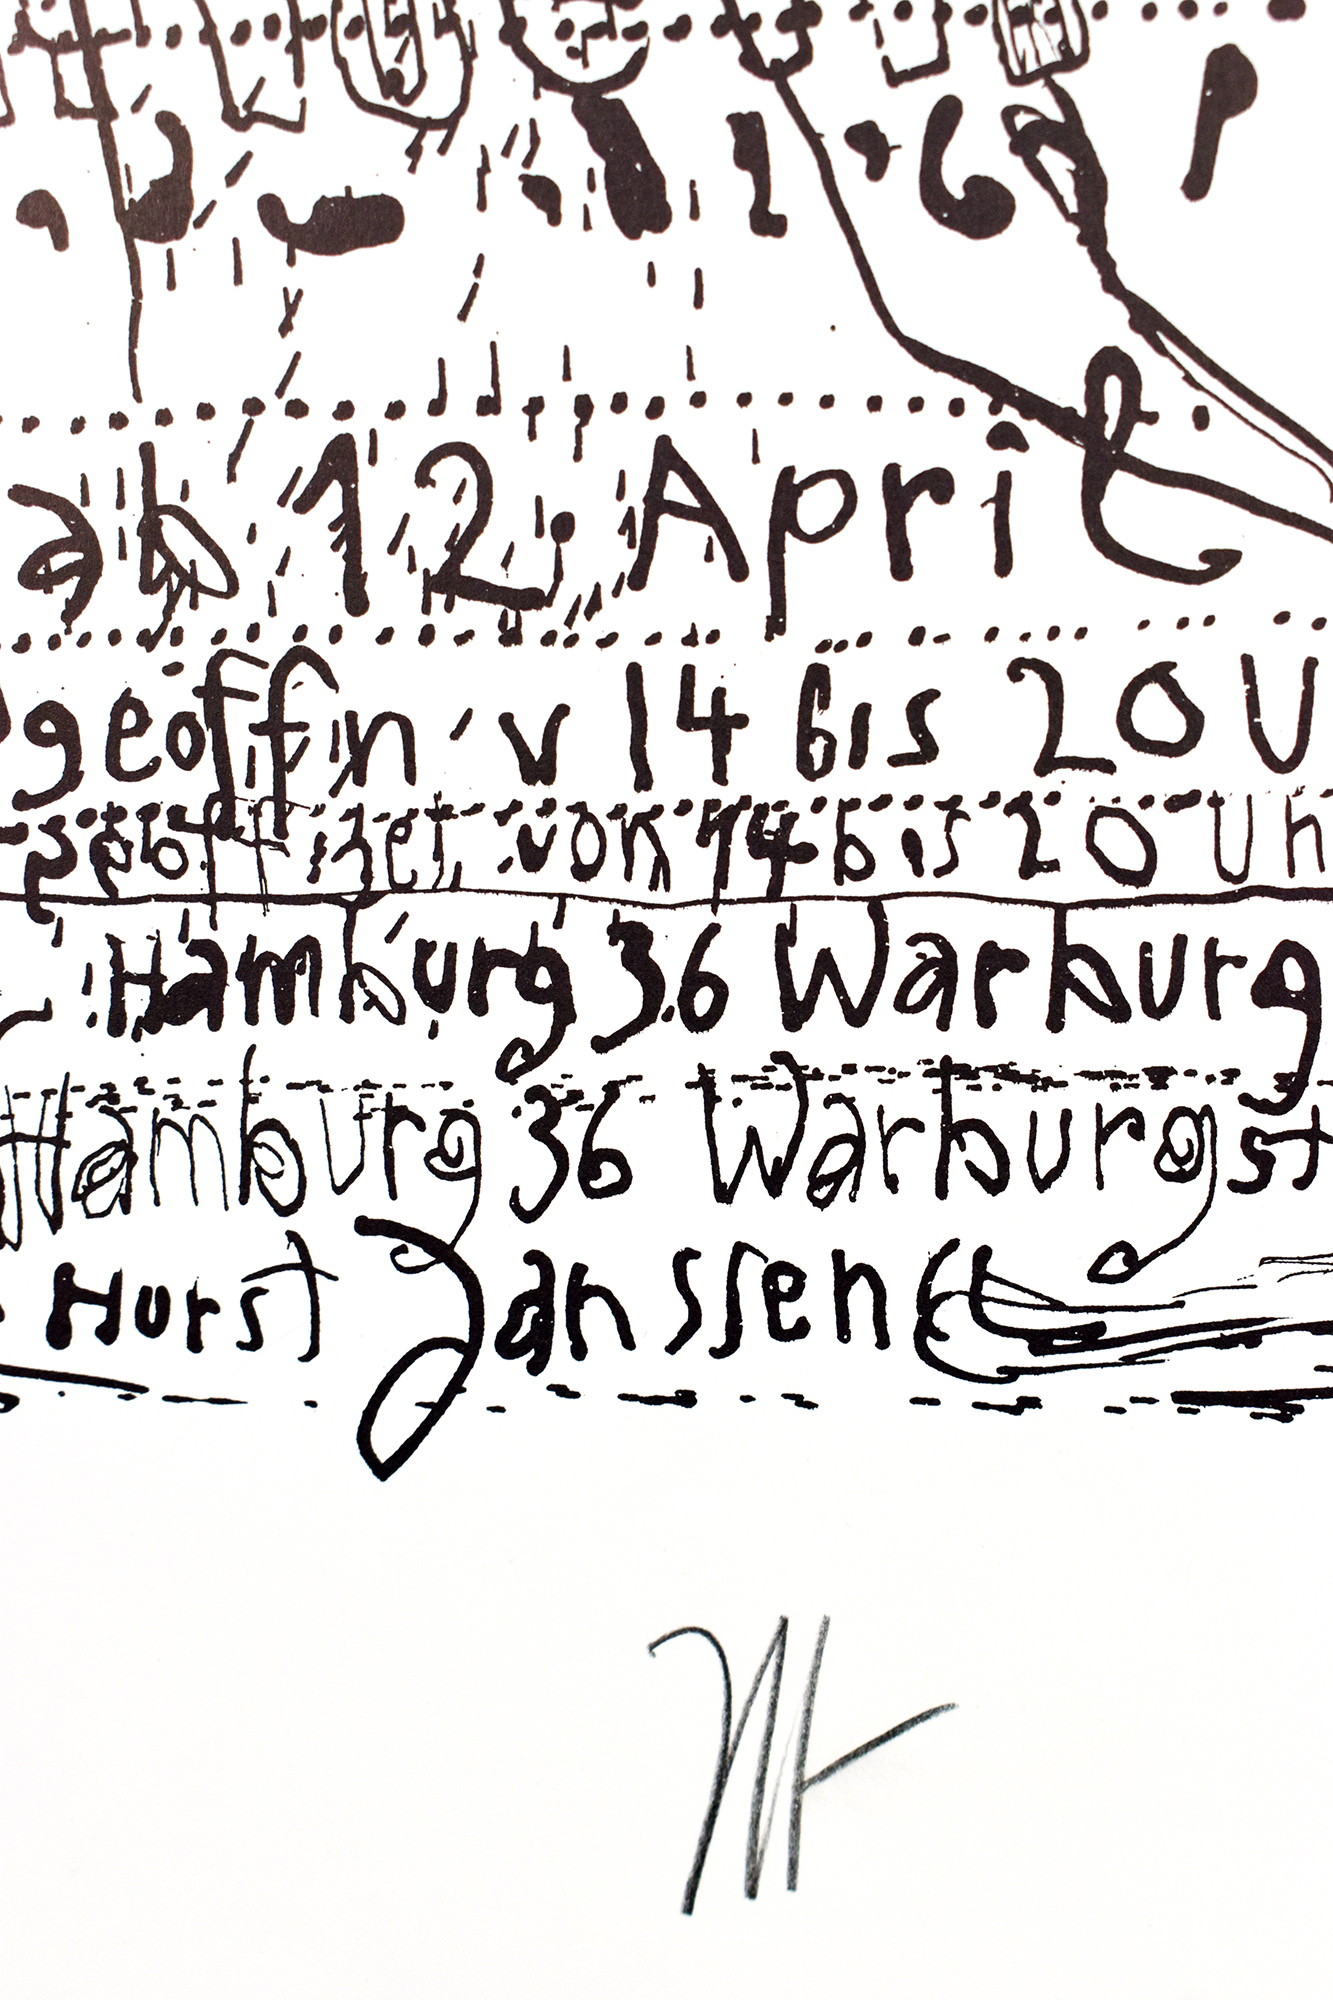 ab 12. April
geöffn v 14 bis 20 U
geöffnet von 14 bis 20 Uh
Hamburg 36 Warburg
Hamburg 36 Warburgst
Horst Janssen